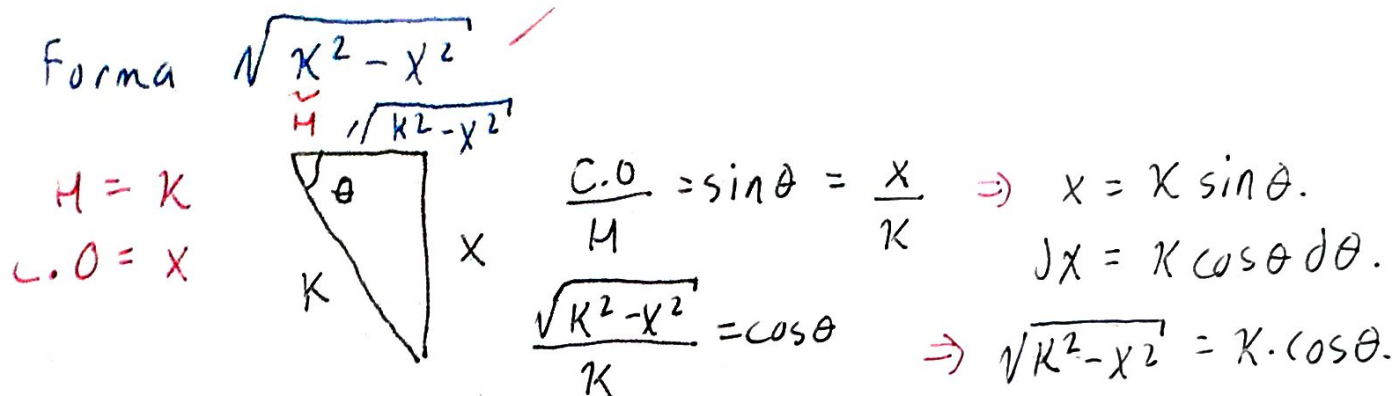 Forma √(K² - X²)
H √(K² - X²)
H = K
C.O = X
θ
K
X
C.O/H = sin θ = X/K ⇒ X = K sin θ.
dX = K cos θ dθ.
√(K² - X²)/K = cos θ ⇒ √(K² - X²) = K · cos θ.